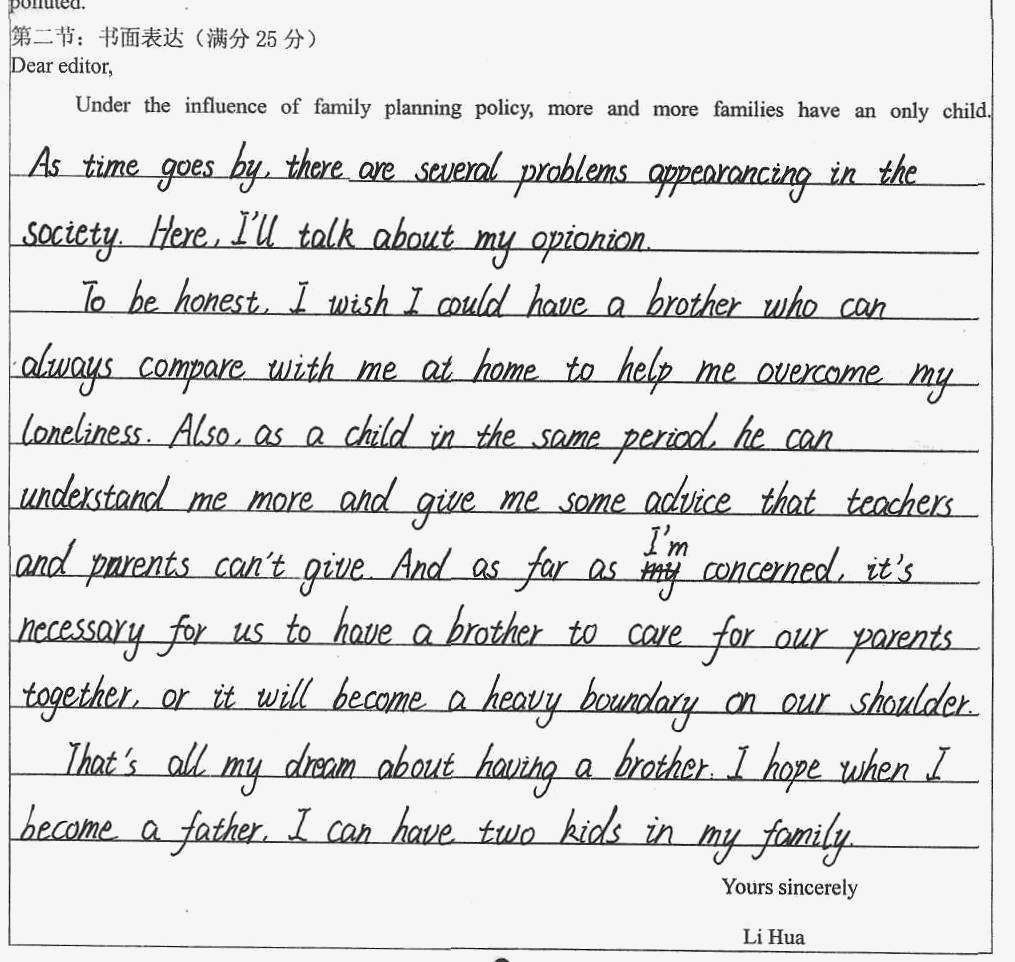 polluted.
第二节：书面表达（满分 25 分）
Dear editor,
Under the influence of family planning policy, more and more families have an only child.
As time goes by, there are several problems appearancing in the
society. Here, I'll talk about my opionion.
To be honest, I wish I could have a brother who can
always compare with me at home to help me overcome my
loneliness. Also, as a child in the same period, he can
understand me more and give me some advice that teachers
and parents can't give. And as far as my I'm concerned, it's
necessary for us to have a brother to care for our parents
together, or it will become a heavy boundary on our shoulder.
That's all my dream about having a brother. I hope when I
become a father, I can have two kids in my family.
Yours sincerely
Li Hua